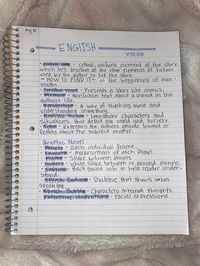 Aug 31
ENGLISH
vocab
- central, unifying element of the story,
which ties together all the other elements of fiction
used by the author to tell the story.
- HOW TO FIND IT - at the beginning of para-
graphs.
- Presents a story like comics.
- Memoir - nonfiction text about a period in the
authors life.
- Perspective - A way of thinking about and
understanding something.
- Realistic Fiction - Imaginary characters and
situations that depict our world and society.
- Tone - Expresses the authors attitude toward or
feeling about the subject matter.
Graphic Novel
- Panels - Each individual frame.
- Layouts - Arrangement of each panel.
- Frames - Space between panels
- Gutters - White space between or around panels.
- Back ground info to help reader under-
stand
- Dialogue that shows whos
speaking
- Characters internal thoughts.
- Facial expressions.